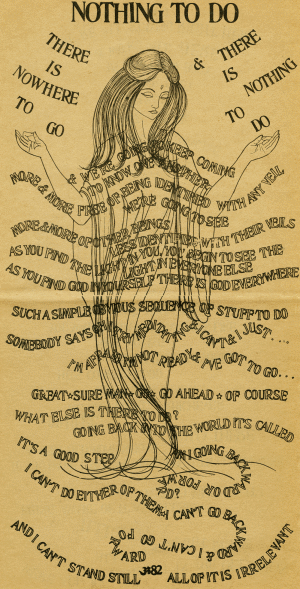 NOTHING TO DO
THERE
IS
NOWHERE
TO GO
&
THERE
IS
NOTHING
TO DO
& WE'RE GOING TO KEEP COMING
TO KNOW ONE ANOTHER
MORE & MORE FREE OF BEING IDENTIFIED WITH ANY VEIL
WE'RE GOING TO SEE
MORE & MORE OF OTHER BEINGS
LESS IDENTIFIED WITH THEIR VEILS
AS YOU FIND THE LIGHT IN YOU, YOU BEGIN TO SEE THE
LIGHT IN EVERYONE ELSE
AS YOU FIND GOD IN YOURSELF THERE IS GOD EVERYWHERE
SUCH A SIMPLE OBVIOUS SEQUENCE OF STUFF TO DO
SOMEBODY SAYS & I CAN'T & I JUST....
I'M AFRAID I'M NOT READY & I'VE GOT TO GO...
GREAT SURE MAN GO GO AHEAD OF COURSE
WHAT ELSE IS THERE TO DO?
GOING BACK INTO THE WORLD IT'S CALLED
IT'S A GOOD STEP
GOING BACKWARD OR FORWARD?
I CAN'T DO EITHER OF THEM I CAN'T GO BACKWARD & I CAN'T GO FORWARD
AND I CAN'T STAND STILL
ALL OF IT IS IRRELEVANT
82